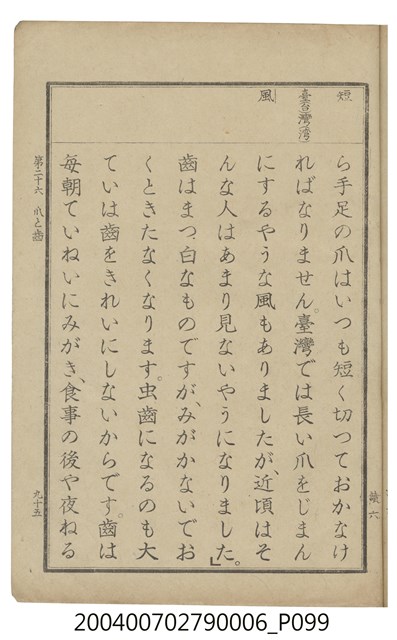 短
臺灣(湾)
風
ら手足の爪はいつも短く切つておかなけ
ればなりません。臺灣では長い爪をじまん
にするやうな風もありましたが、近頃はそ
んな人はあまり見ないやうになりました。」
齒はまつ白なものですが、みがかないでお
くときたなくなります。虫齒になるのも大
ていは齒をきれいにしないからです。齒は
每朝ていねいにみがき、食事の後や夜ねる
第二十六 爪と齒
九十五
200400702790006_P099